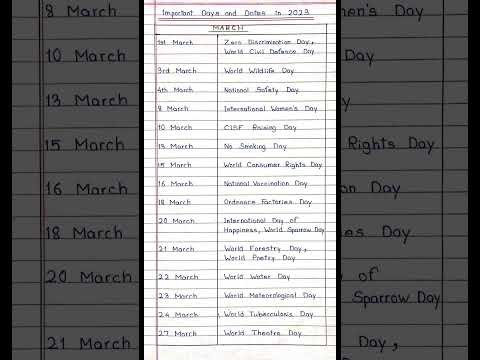 Important Days and Dates in 2023
MARCH
1st March Zero Discrimination Day,
World Civil Defence Day
3rd March World Wildlife Day
4th March National Safety Day
8 March International Women's Day
10 March CISF Raising Day
13 March No Smoking Day
15 March World Consumer Rights Day
16 March National Vaccination Day
18 March Ordnance Factories Day
20 March International Day of
Happiness, World Sparrow Day
21 March World Forestry Day,
World Poetry Day
22 March World Water Day
23 March World Meteorological Day
24 March World Tuberculosis Day
27 March World Theatre Day
8 March
10 March
13 March
15 March
16 March
18 March
20 March
21 March
men's Day
Day
Rights Day
on Day
es Day
of
Sparrow Day
Day,